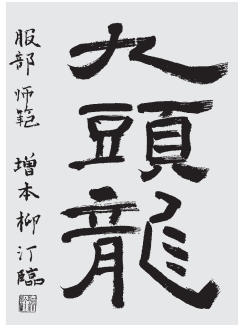 九頭龍
服部師範 増本柳汀臨